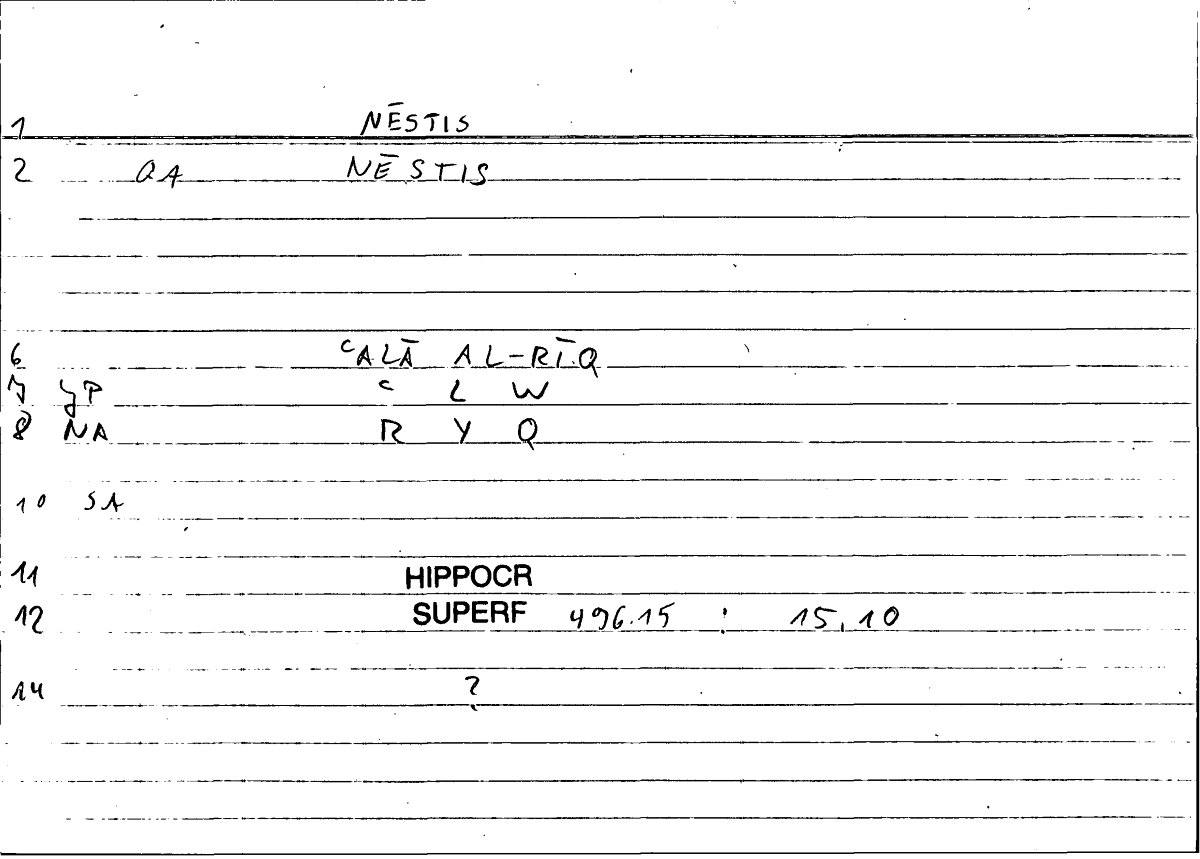 1 NĒSTIS
2 QA NĒSTIS
6 ʿALĀ AL-RĪQ
7 ʿ L W
8 NA R Y Q
10 SA
11 HIPPOCR
12 SUPERF 496.15 : 15,10
14 ?